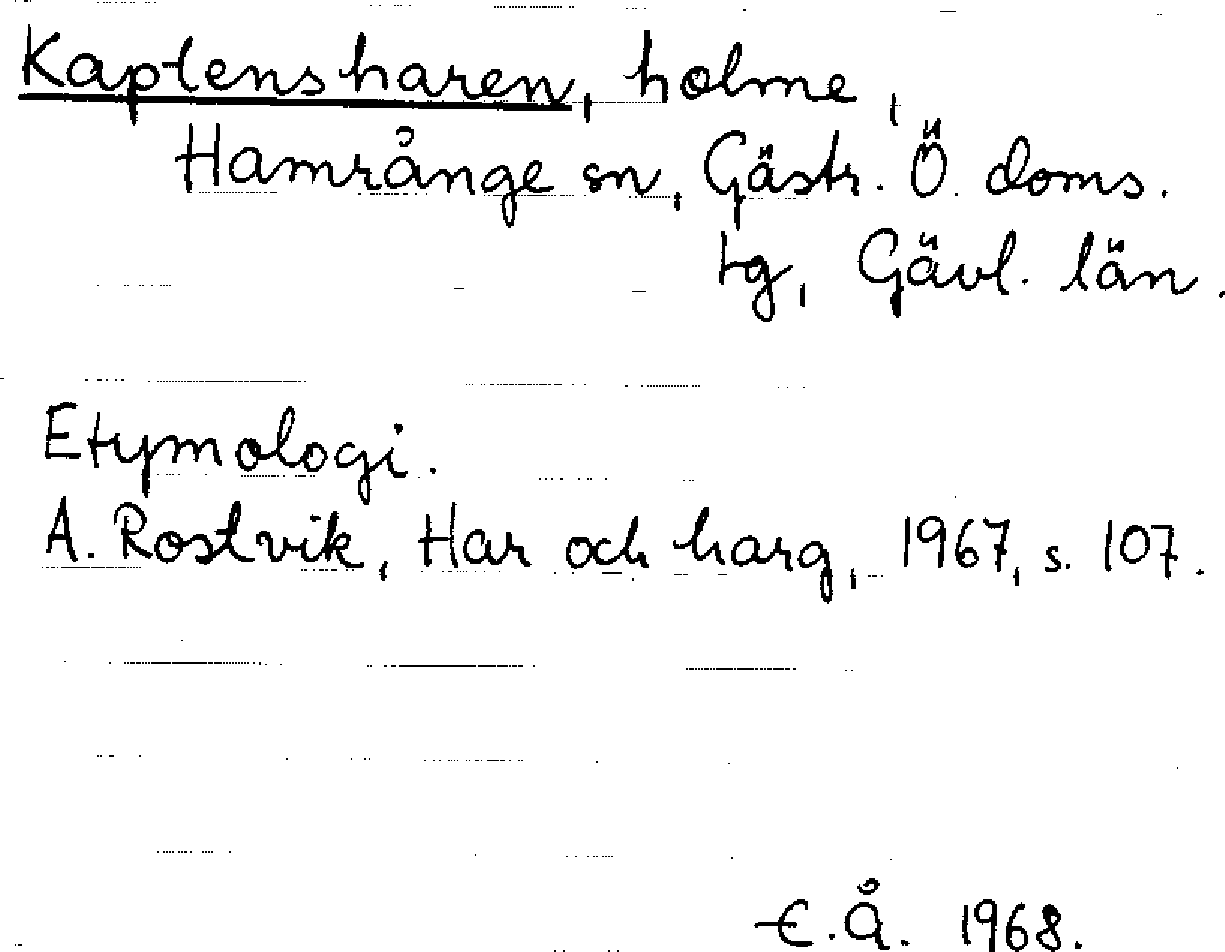 Kaptensharen, holme,
Hamrånge sn, Gästr. Ö. doms.
tg, Gävl. län.
Etymologi.
A. Rostvik, Har och harg, 1967, s. 107.
E.Å. 1968.